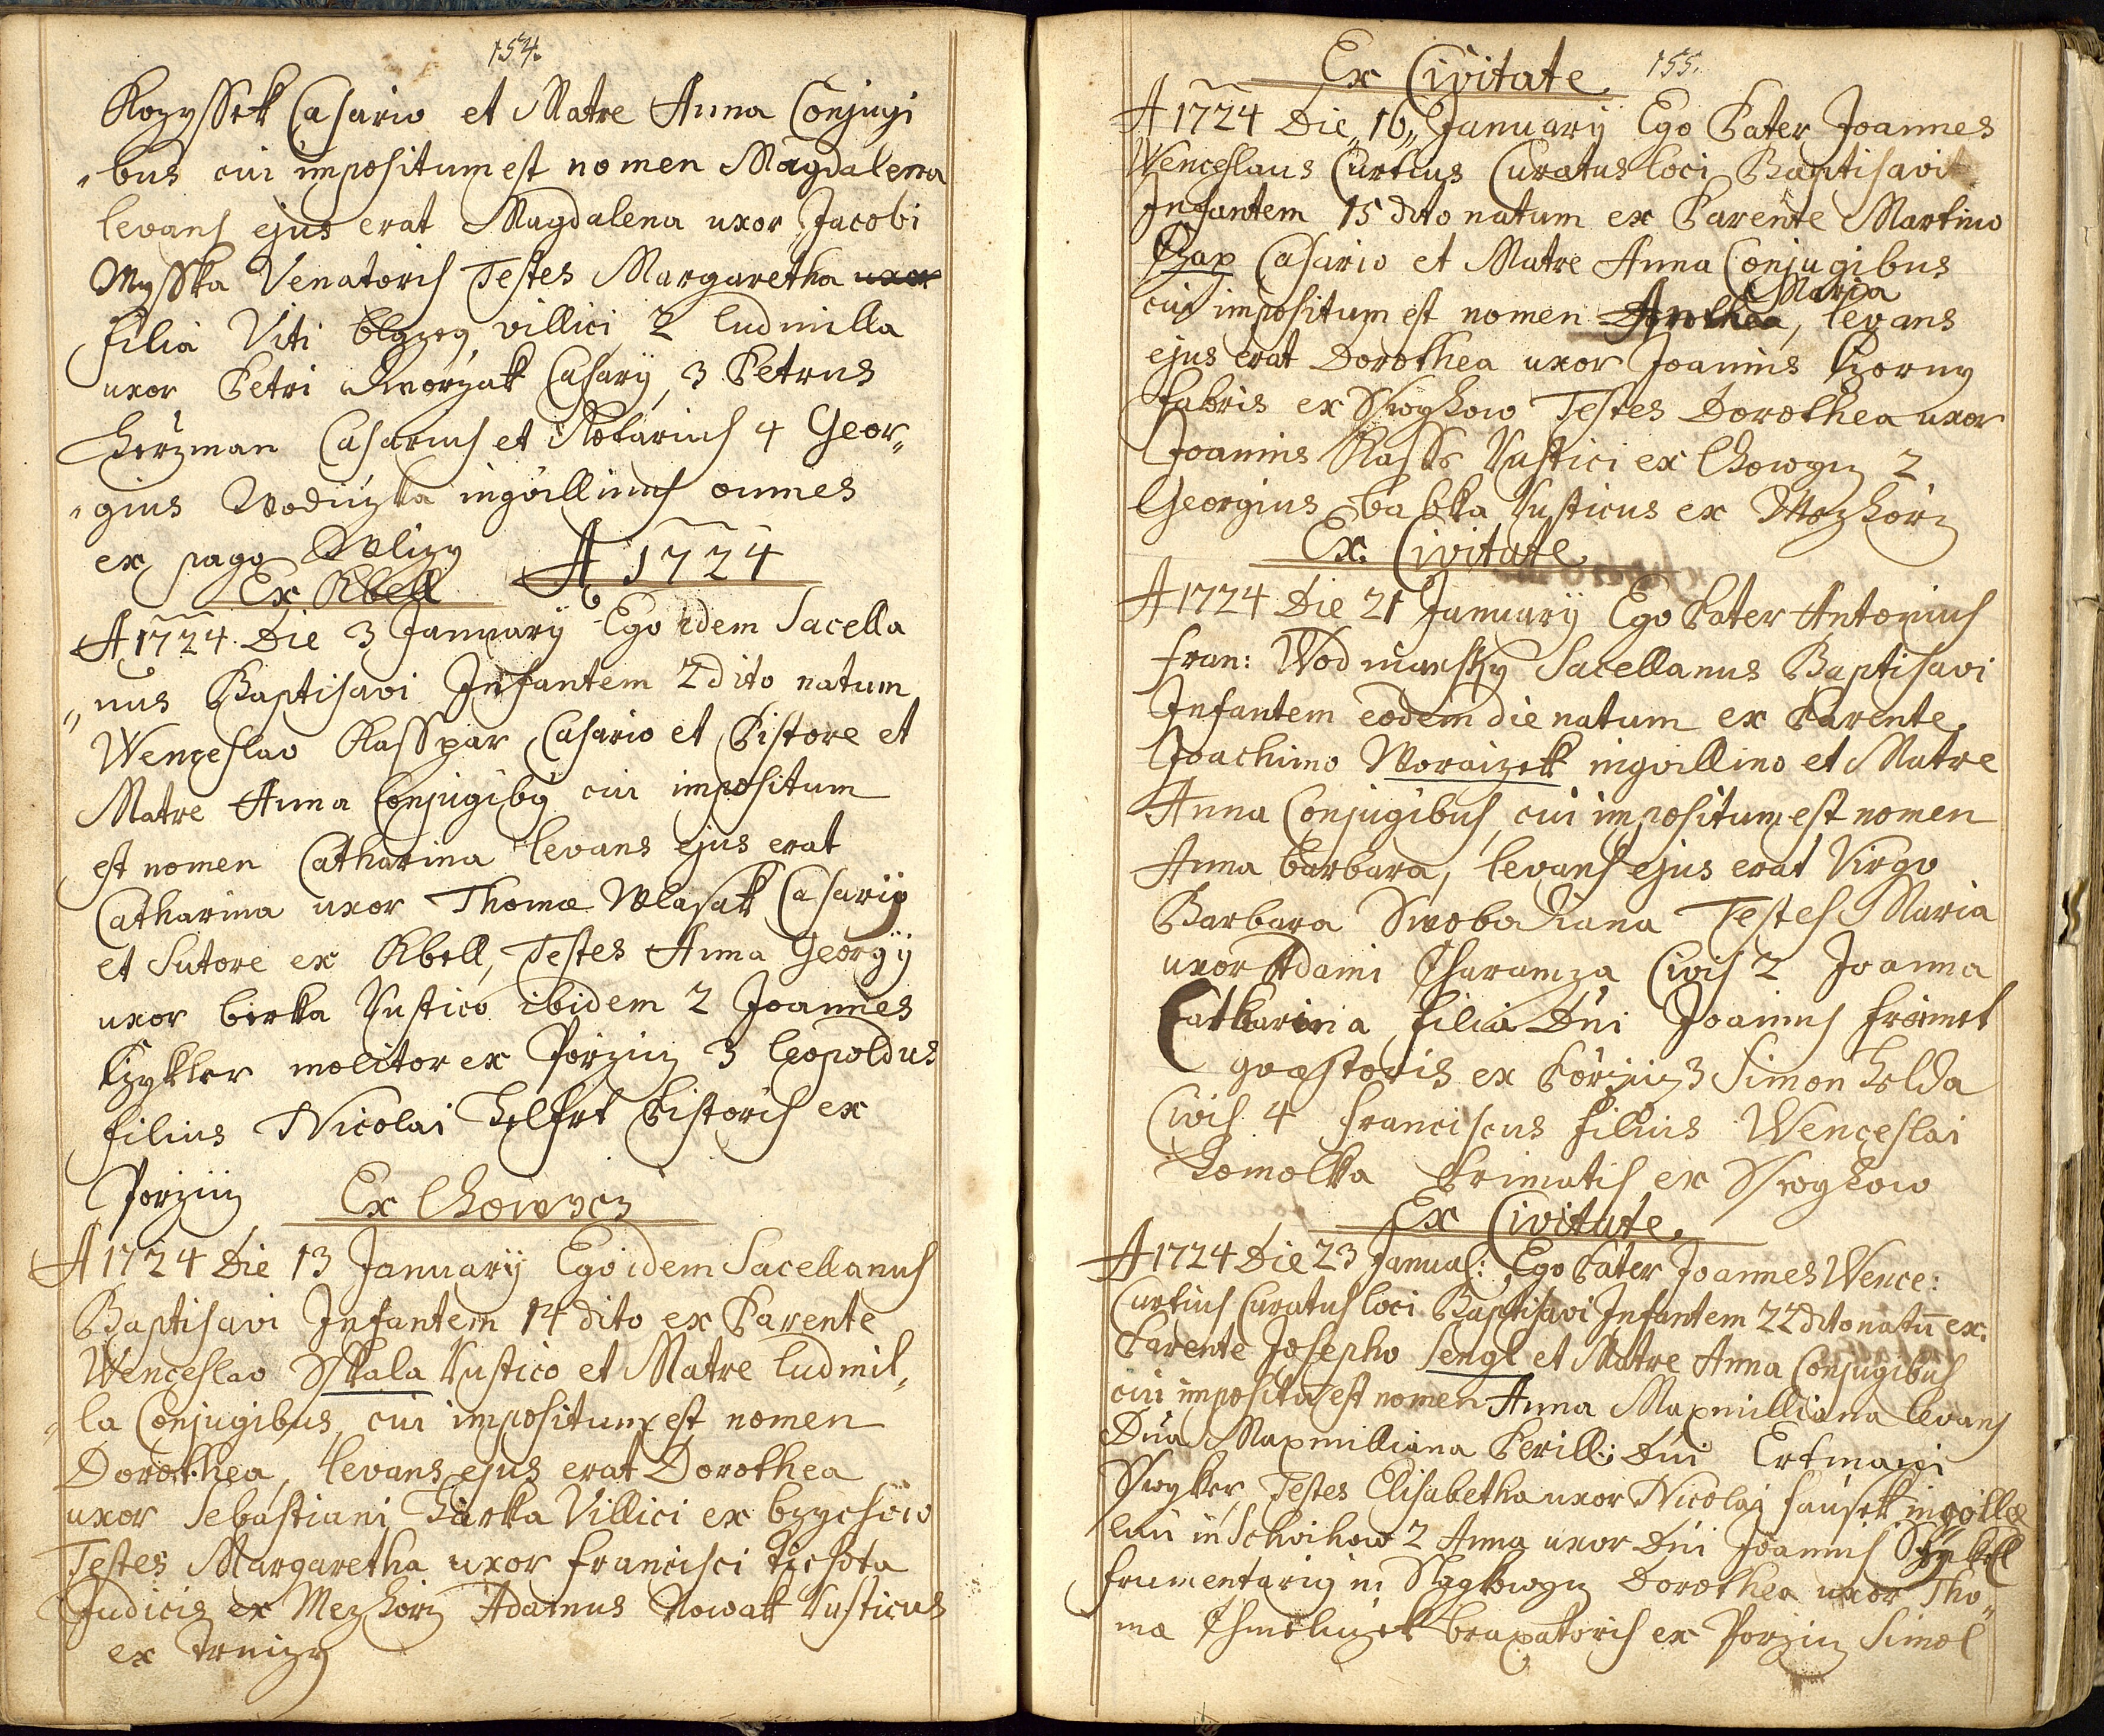 154.
Kozyssek Casario et Matre Anna Conjugi
„bus cui impositum est nomen Magdalena
levans ejus erat Magdalena uxor Jacobi
Mysska Venatoris Testes Margaretha uxor
filia Viti villici 2 Ludmilla
uxor Petri Dworzak Casarij, 3 Petrus
Herzman Casarius et Notarius 4 Geor„
„gius Wodiczka inquillinus omnes
ex pago Wlizy
A 1724
Ex Kbell
A 1724 Die 3 Januarij Ego idem Sacella
„nus Baptisavi Infantem 2 dito natum
Wenceslao Kasspar Casario et Pistore et
Matre Anna Conjugibq cui impositum
est nomen Catharina levans ejus erat
Catharina uxor Thomæ Wlasak Casarij
et Sutore ex Kbell, Testes Anna Georgij
uxor Berka Rustico ibidem 2 Joannes
molitor ex Porziz 3 Leopoldus
filius Nicolai Helfrt Pistoris ex
Porziz
Ex Chowncz
A 1724 Die 13 Januarij Ego idem Sacellanus
Baptisavi Infantem 14 dito ex Parente
Wenceslao Skala Rustico et Matre Ludmil„
„la Conjugibus cui impositum est nomen
Dorothea, levans ejus erat Dorothea
uxor Sebastiani Hurka Villici ex Bzychow
Testes Margaretha uxor Francisci Tichota
Judicis ex Mezhorz Adamus Nowak Rusticus
ex
155.
Ex Civitate
A 1724 Die 16 Januarij Ego Pater Joannes
Wenceslaus Curtius Curatus loci Baptisavit
Infantem 15 dito natum ex Parente Martino
Czap Casario et Matre Anna Conjugibus
Maria
cui impositum est nomen Dorothea, levans
ejus erat Dorothea uxor Joannis Czerny
fabris ex Swyhow Testes Dorothea uxor
Joannis Rustici ex Chowgn 2
Georgius Babka Rusticus ex Mezhorz
Ex Civitate
A 1724 Die 21 Januarij Ego Pater Antonius
Fran: Wodniansky Sacellanus Baptisavi
Infantem eodem die natum ex Parente
Joachimo Woraczek inquillino et Matre
Anna Conjugibus, cui impositum est nomen
Anna Barbara, levans ejus erat Virgo
Barbara Swobodiana Testes Maria
uxor Adami Charamza Civis 2 Joanna
Catharina filia Dni Joannis
quæstoris ex Porziz 3 Simon Holda
Civis 4 Franciscus filius Wenceslai
Homolka Primatis ex Swyhow
Ex Civitate
A 1724 Die 23 Januar: Ego Pater Joannes Wence:
Curtius Curatus loci Baptisavi Infantem 22 dito natū ex
Parente Josepho Sengl et Matre Anna Conjugibus
cui impositū est nomen Anna Maxmilliana levans
Dna Maxmilliana Perill: Dni Ertmani
Testes Elisabetha uxor Nicolai Fausek inquille
lini in Schwihow 2 Anna uxor Dni Joannis
frumentarij in Dorothea uxor Tho„
mæ Chmeliczek braxatoris ex Porziz Simol